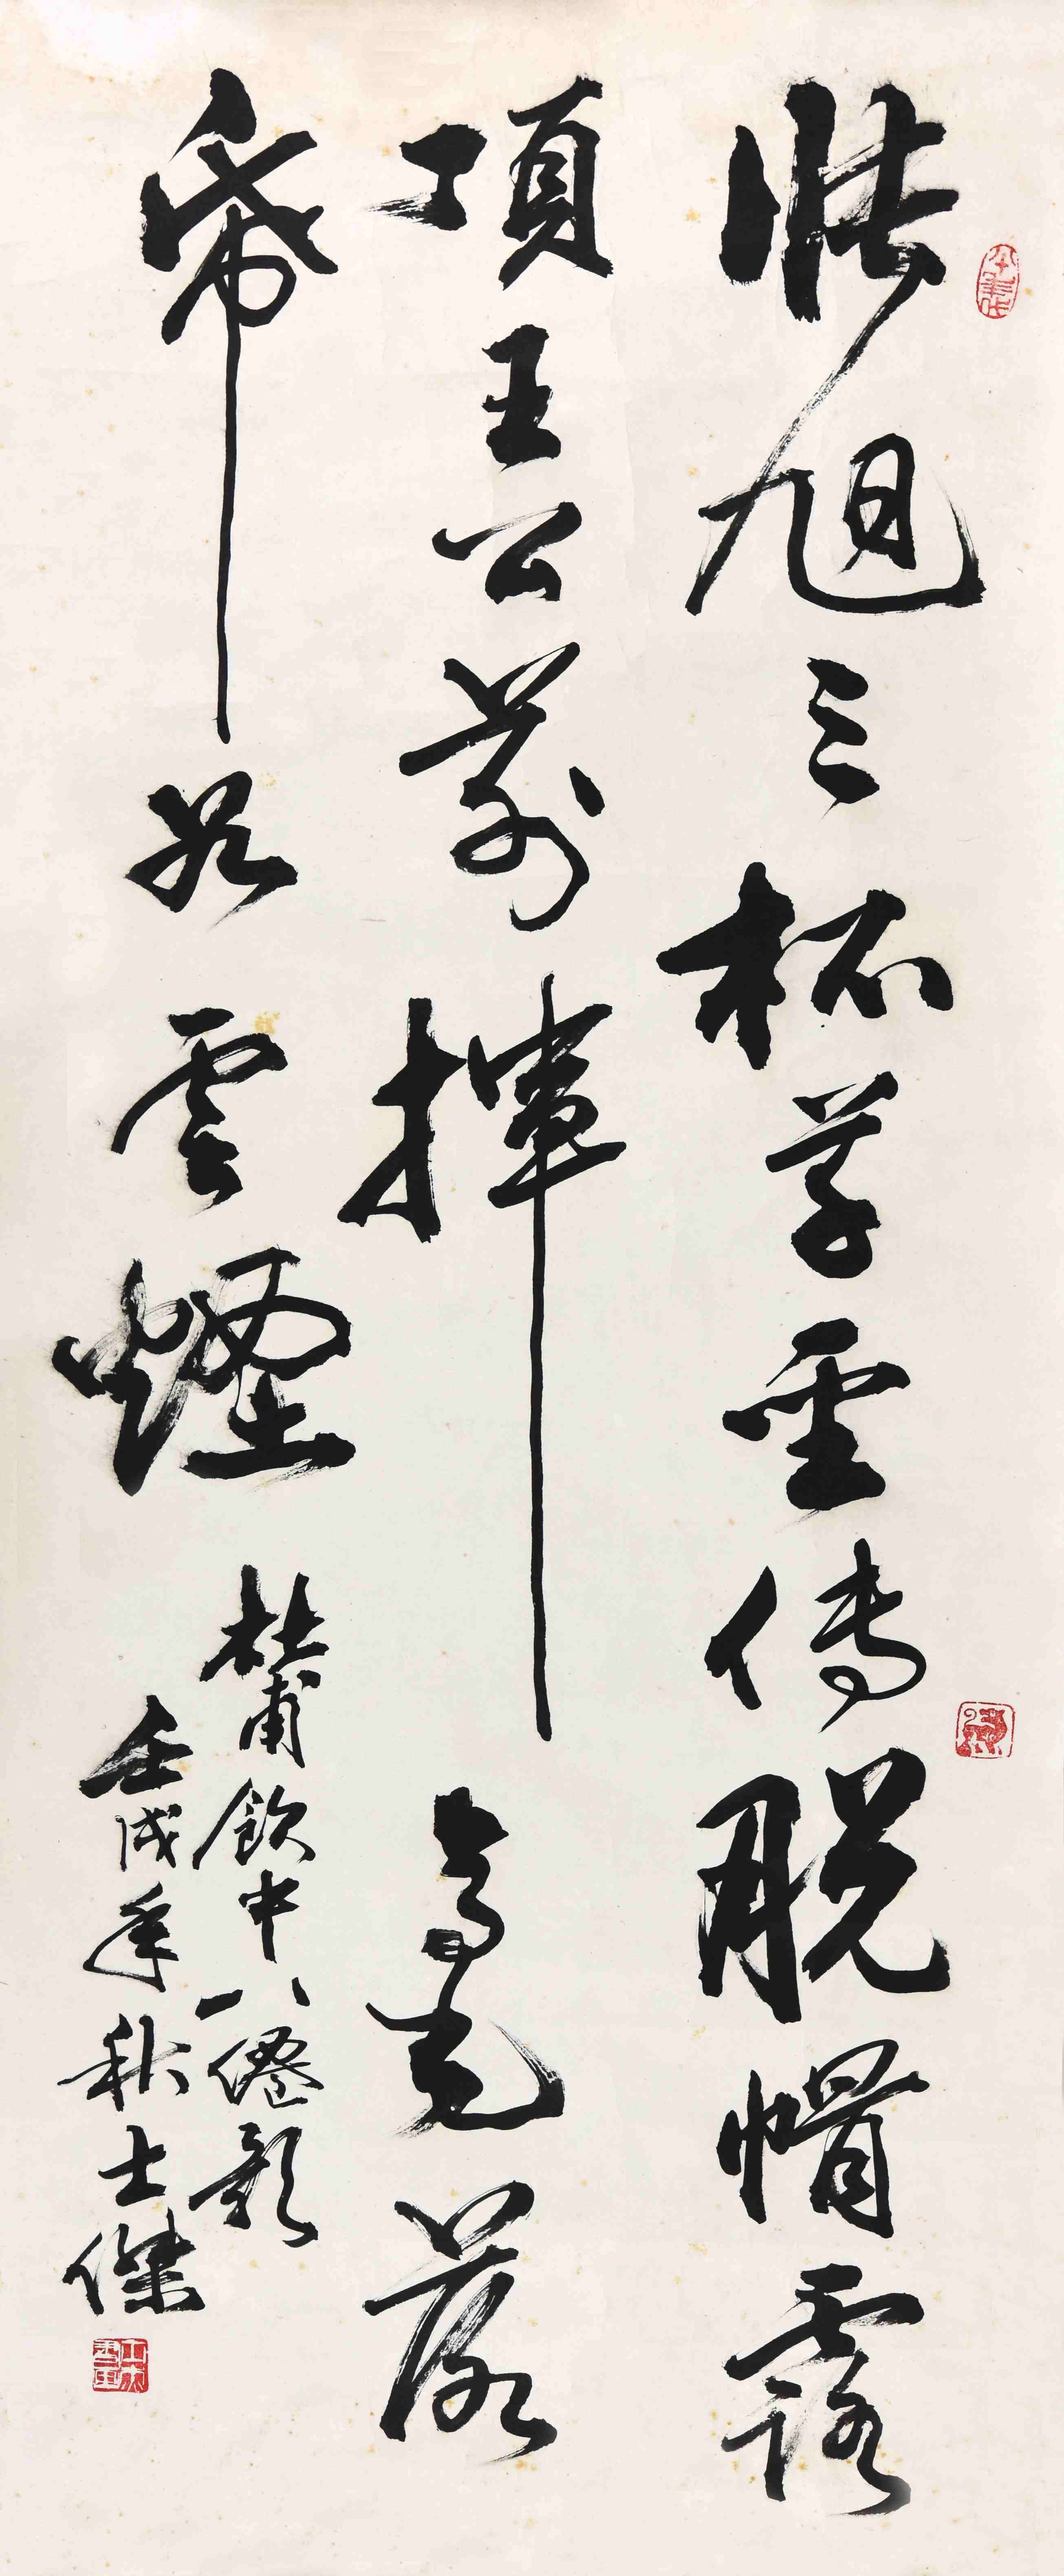 張旭三杯草聖傳脫帽露
頂王公前揮毫落
帋如雲煙
杜甫飲中八僊歌
壬戌年秋士傑